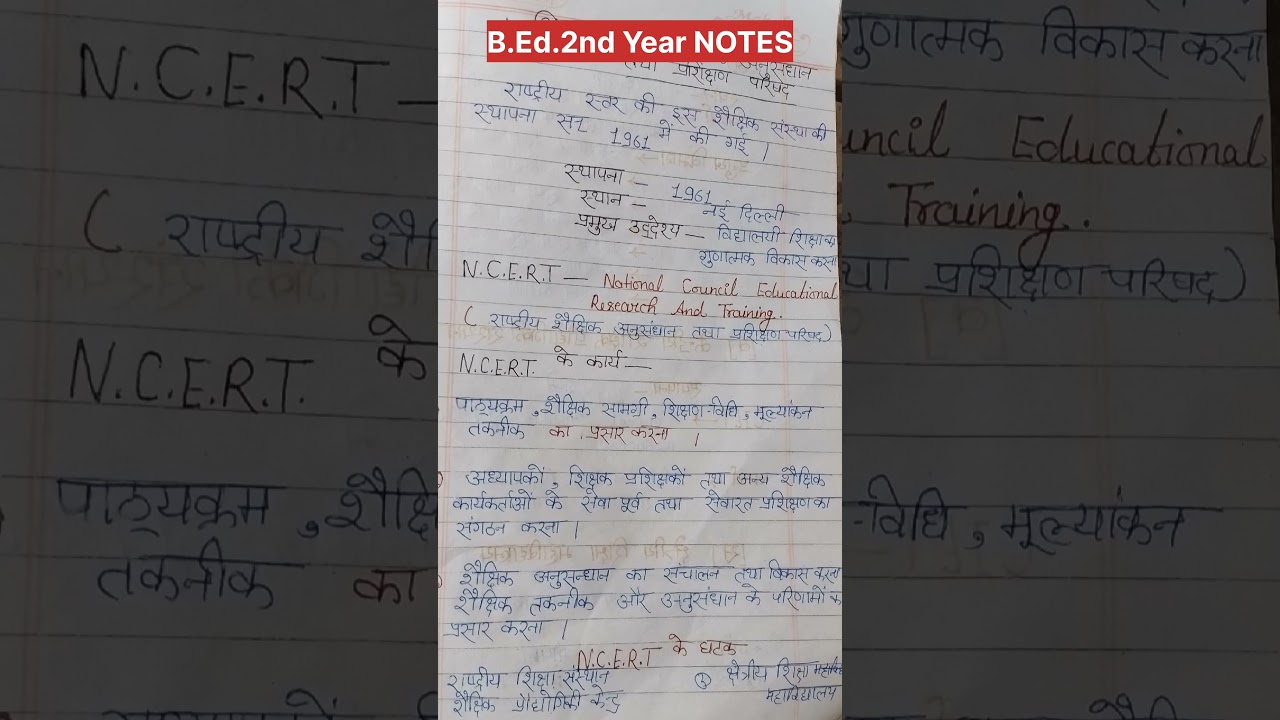 B.Ed.2nd Year NOTES
अनुसंधान
तथा प्रशिक्षण परिषद
राष्ट्रीय स्तर की इस शैक्षिक संस्था की
स्थापना सन् 1961 में की गई ।
स्थापना — 1961
स्थान — नई दिल्ली
प्रमुख उद्देश्य — विद्यालयी शिक्षा का
गुणात्मक विकास करना
N.C.E.R.T — National Council Educational
Research And Training.
( राष्ट्रीय शैक्षिक अनुसंधान तथा प्रशिक्षण परिषद)
N.C.E.R.T. के कार्य —
पाठ्यक्रम, शैक्षिक सामग्री, शिक्षण-विधि, मूल्यांकन
तकनीक का प्रसार करना ।
अध्यापकों, शिक्षक प्रशिक्षकों तथा अन्य शैक्षिक
कार्यकर्ताओं के सेवा पूर्व तथा सेवारत प्रशिक्षण का
संगठन करना ।
शैक्षिक अनुसन्धान का संचालन तथा विकास करना
शैक्षिक तकनीक और अनुसंधान के परिणामों का
प्रसार करना ।
N.C.E.R.T के घटक
राष्ट्रीय शिक्षा संस्थान
शैक्षिक प्रौद्योगिकी केन्द्र
क्षेत्रीय शिक्षा
महाविद्यालय